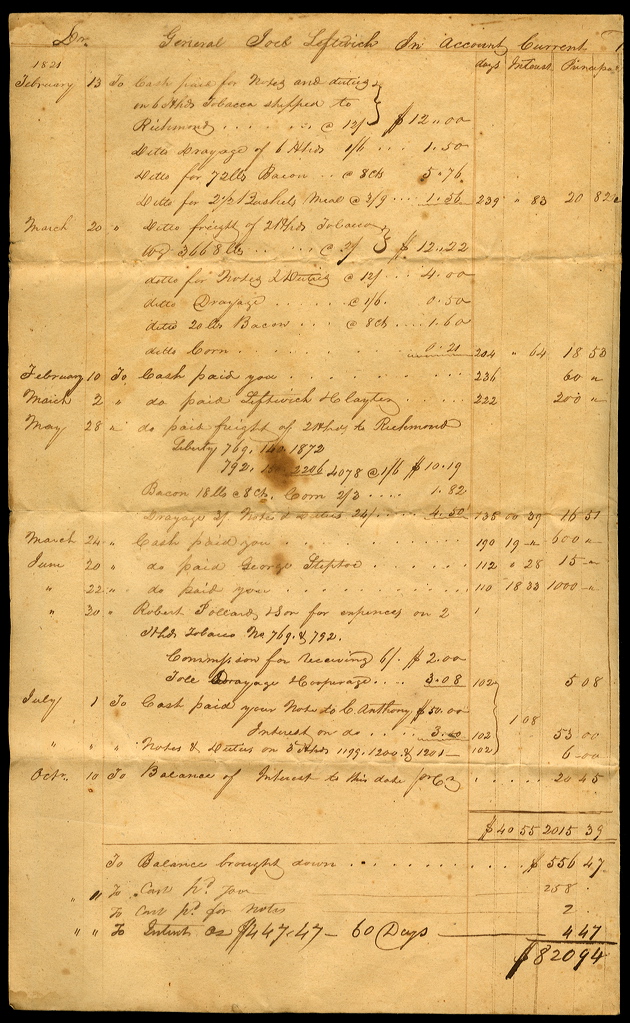 Dr. General Joel Leftwich In Account Current
days Interest Principal
1821
February 13 To Cash paid for Notes and duties
on 6 Hhds Tobacco shipped to
Richmond . . . . . . . @ 12/ $ 12.00
Ditto Drayage of 6 Hhds 1/6 . . . 1.50
Ditto for 72 lbs Bacon . . @ 8cts . . . 5.76
Ditto for 2½ Bushels Meal @ 3/9 . . . 1.56 239 " 83 20 82
March 20 " Ditto freight of 2 Hhds Tobacco
Wt 3668 lbs . . . . . . @ 2/ $ 12.22
ditto for Notes & Duties @ 12/ . . . 4.00
ditto Drayage . . . . . . @ 1/6. 0.50
ditto 20 lbs Bacon . . . @ 8cts . . . 1.60
ditto Corn . . . . . . . . . 0.21 204 " 64 18 53
February 10 To Cash paid you . . . . . . . . . 236 60 "
March 2 " do paid Leftwich & Clayton . . . . . 222 200 "
May 28 " do paid freight of 2 Hhds to Richmond
Liberty 769. 140. 1872
792. 2206 4078 @ 1/6 $ 10.19
Bacon 18 lbs @ 8cts. Corn 2/3 . . . . 1.82
Drayage 3/ Notes & Duties 24/ . . . . 4.50 135 00 39 16 51
March 24 " Cash paid you . . . . . . . . . 190 19 " 600 "
June 20 " do paid George Steptoe . . . . . . 112 " 28 15 "
" 22 " do paid you . . . . . . . . . 110 18 33 1000 "
" 30 " Robert Pollard & Son for expences on 2
Hhds Tobacco No 769. & 792.
Commission for receiving 6/. $ 2.00
Tole Drayage & Cooperage . . . . 3.08 102 5 08
July 1 To Cash paid your Note to C. Anthony $ 50.00
1 08
Interest on do . . . . . 3.00 102 53.00
" " " Notes & Duties on 3 Hhds 1199. 1200. & 1201 — 102 6.00
Octr. 10 To Balance of Interest to this date . . . . . . 20 45
$ 40 55 2015 39
To Balance brought down . . . . . . . . . . $ 556 47
" " To Cash pd. you 258 .
To Cash pd. for Notes 2 .
" " To Interest on $447.47 — 60 Days 4 47
$ 820 94